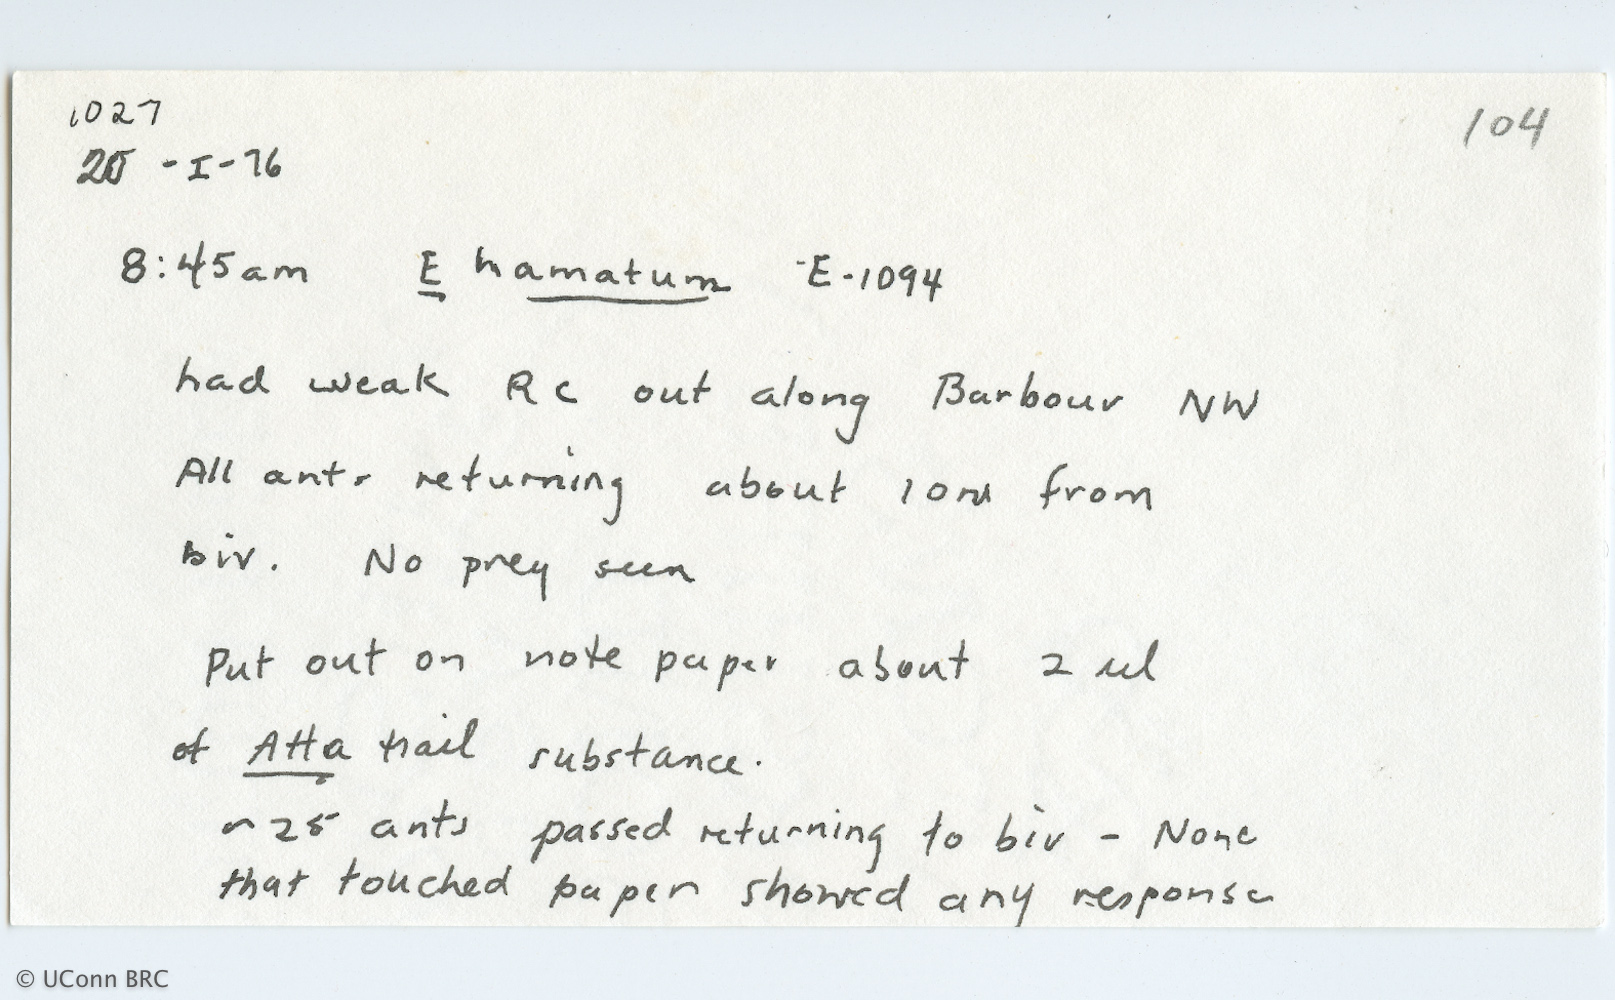 1027
104
-I-76
8:45am E hamatum E-1094
had weak RC out along Barbour NW
All ants returning about 10m from
biv. No prey seen
Put out on note paper about 2 ul
of Atta trail substance.
~25 ants passed returning to biv - None
that touched paper showed any response
© UConn BRC